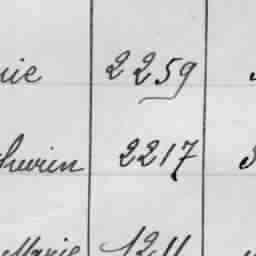 rie 2259
thurin 2217
Marie 1211